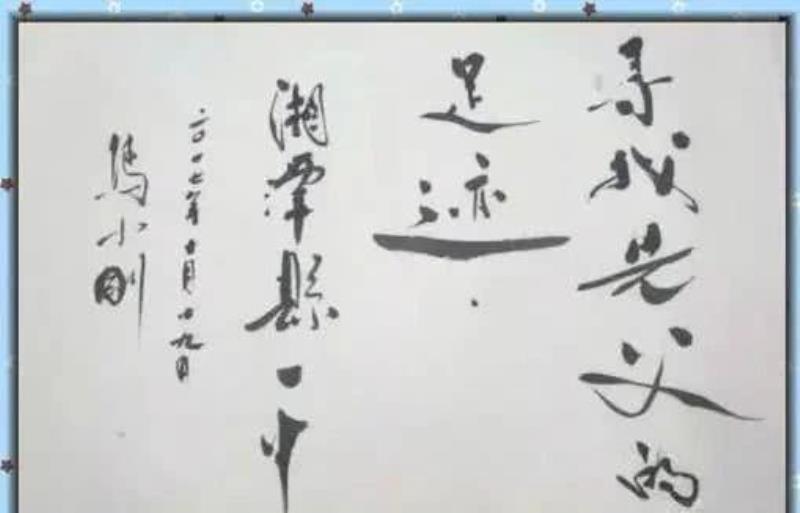 寻我先父的
足迹.
湘潭縣一中
二〇一七年十月十九日
馬小刚